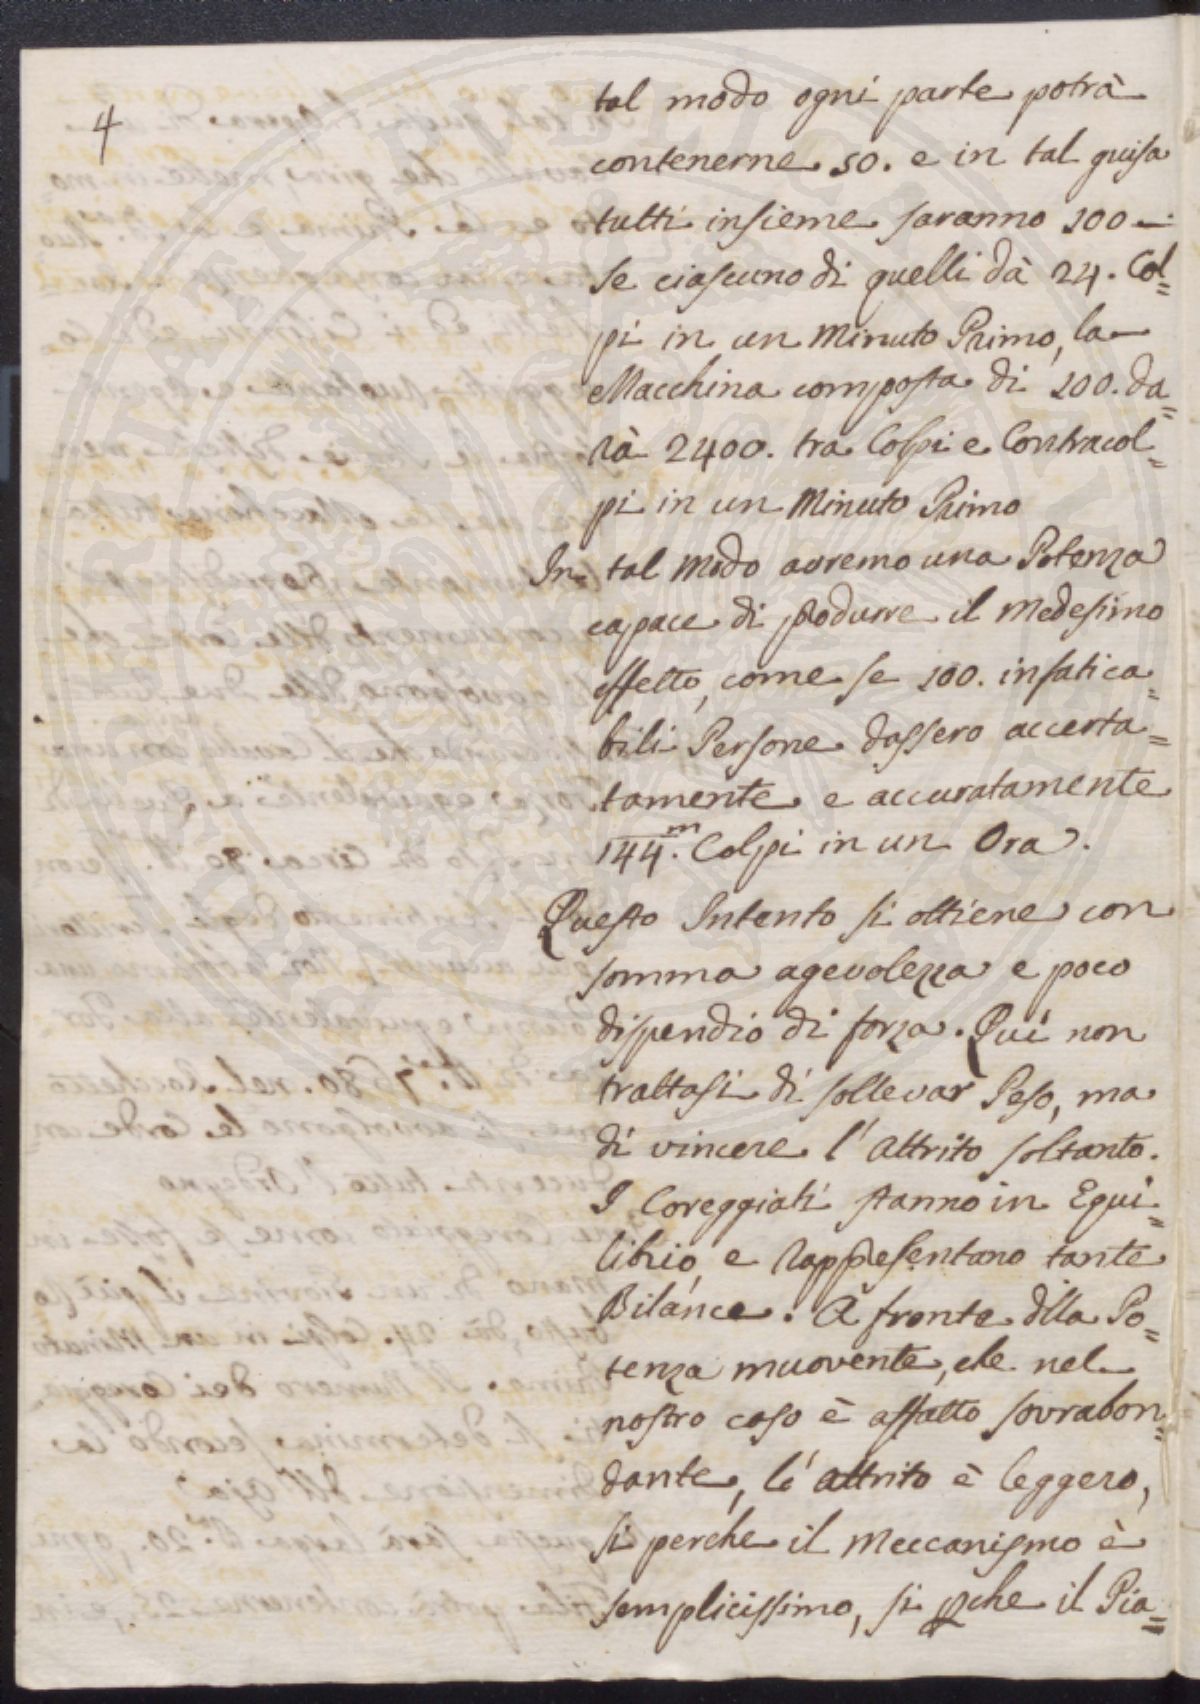 4
tal modo ogni parte potrà
contenerne 50. e in tal guisa
tutti insieme saranno 100 —
se ciascuno di quelli dà 24. Col=
pi in un Minuto Primo, la
Macchina composta di 100. da=
rà 2400. tra Colpi e Contracol=
pi in un Minuto Primo
In tal modo avremo una Potenza
capace di produrre il medesimo
effetto, come se 100. infatica=
bili Persone dassero accerta=
tamente e accuratamente
144.m Colpi in un Ora.
Questo Intento si ottiene con
somma agevolezza e poco
dispendio di forza. Qui non
trattasi di sollevar Peso, ma
di vincere l'attrito soltanto.
I Coreggiati stanno in Equi=
librio, e rappresentano tante
Bilance. A fronte dlla Po=
tenza muovente, che nel
nostro caso è affatto sovrabon=
dante, l'attrito è leggero,
si perche il Meccanismo è
semplicissimo, si pche il Pia=